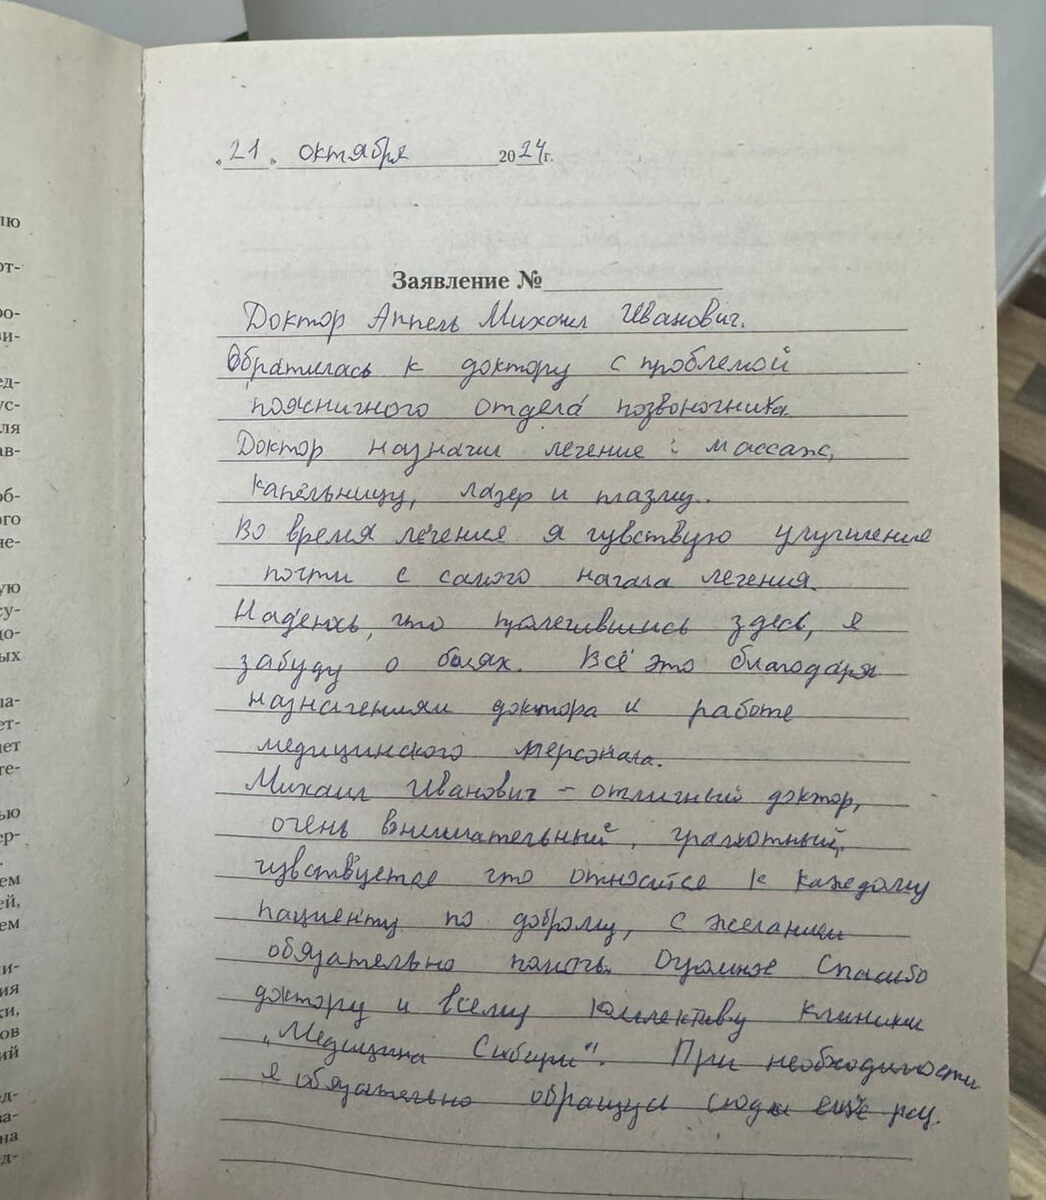 лю
от-
ро-
ви-
ед-
ус-
ля
ав-
об-
ого
не-
ую
су-
до-
ых
ла-
ет-
нет
те-
ью
ер-
ем
ей,
ем
и-
ия
ки,
ов
ий
ед-
за-
на
д-
„21„ октября 2024г.
Заявление №
Доктор Аппель Михаил Иванович.
Обратилась к доктору с проблемой
поясничного отдела позвоночника.
Доктор назначил лечение: массаж,
капельницу, лазер и плазму..
Во время лечения я чувствую улучшение
почти с самого начала лечения.
Надеюсь, что пролечившись здесь, я
забуду о болях. Всё это благодаря
назначениям доктора и работе
медицинского персонала.
Михаил Иванович – отличный доктор,
очень внимательный, грамотный,
чувствуется что относится к каждому
пациенту по доброму, с желанием
обязательно помочь. Огромное Спасибо
доктору и всему коллективу клиники
„Медицина Сибири". При необходимости
я обязательно обращусь сюда ещё раз.